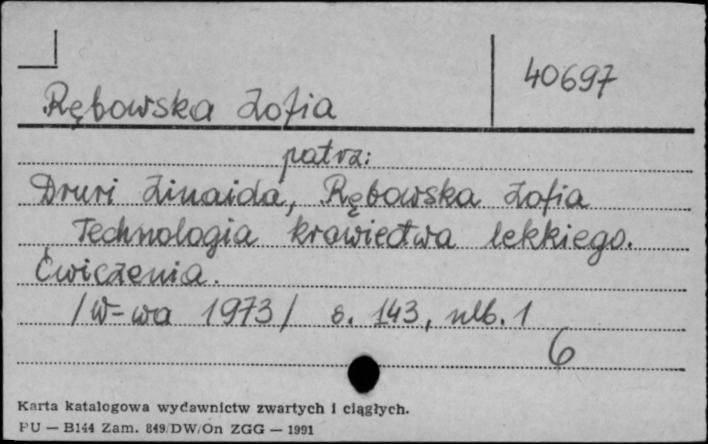 40697
Rębowska Zofia
patrz:
Druri Zinaida, Rębowska Zofia
Technologia krawiectwa lekkiego.
Ćwiczenia.
/W-wa 1973/ s. 143, nlb. 1
6
Karta katalogowa wydawnictw zwartych i ciągłych.
PU — B144 Zam. 849/DW/On ZGG — 1991